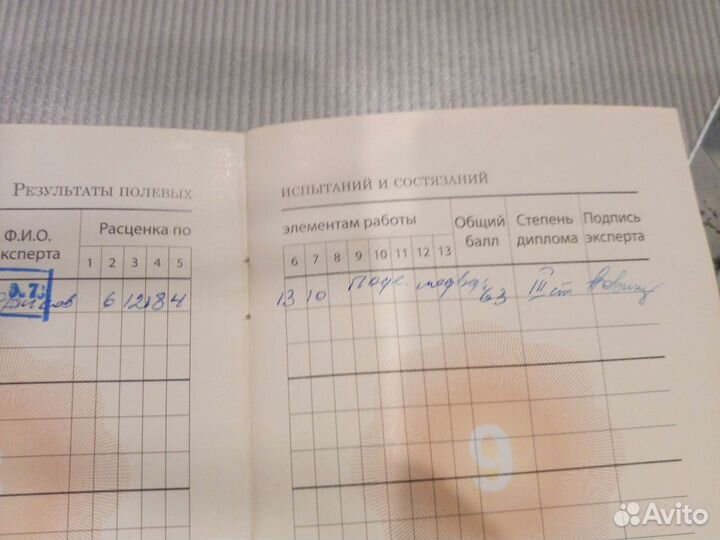 Результаты полевых
испытаний и состязаний
Ф.И.О.
ксперта
Расценка по
1 2 3 4 5
элементам работы
6 7 8 9 10 11 12 13
Общий
балл
Степень
диплома
Подпись
эксперта
6 12 18 4
13 10 63 III ст
9
Avito